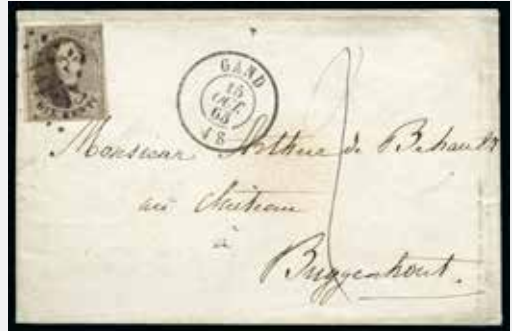 GAND
15
OCT.
63
4 S
Monsieur Arthur de Behault
au château
à
Buggenhout.